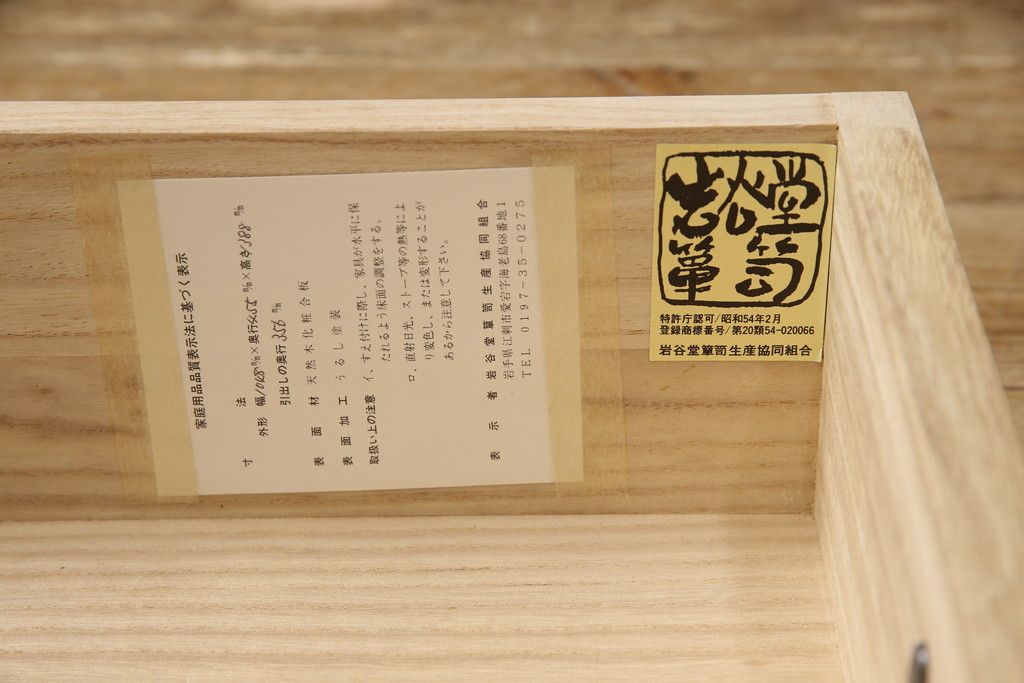 家庭用品品質表示法に基づく表示
寸 法
外形 幅1048㎜×奥行455㎜×高さ388㎜
引出しの奥行 356㎜
表 面 材 天然木化粧合板
表 面 加 工 うるし塗装
取扱い上の注意 イ、すえ付けに際し、家具が水平に保
たれるよう床面の調整をする。
ロ、直射日光、ストーブ等の熱等によ
り変色し、または変形することが
あるから注意して下さい。
表 示 者 岩谷堂簞笥生産協同組合
岩手県江刺市愛宕字海老島68番地1
TEL 0197-35-0275
岩谷堂
簞笥
特許庁認可/昭和54年2月
登録商標番号/第20類54-020066
岩谷堂簞笥生産協同組合